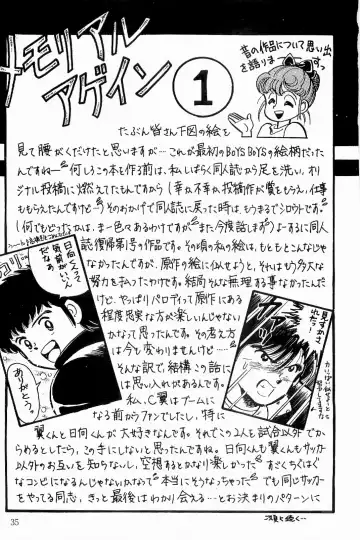 メモリアル
アゲイン
1
昔の作品について思い出
を語りまーすっ
たぶん皆さん下図の絵を
見て腰がくだけたと思いますが…これが最初のBOYS BOYSの絵柄だった
んですねー 何しろこの本を作る前は、私しばらく同人誌から足を洗い、オリ
ジナル投稿に燃えてたもんですから(幸か不幸か投稿作が賞をもらえ、仕事
ももらえたんですけどー)そのおかげで同人誌に戻った時は、もうまるでシロウトです。
(何でもどったかは、まー色々あるわけですが また今度話します)よーするに同人
誌復帰第1号の作品です。その頃の私の絵は、もともとこんなじゃ
なかったんですが、原作の絵に似せようと、それはもう多大な
努力を払ってたわけです。結局そんな無理する事なかったんだ
けど。やっぱりパロディって原作にある
程度忠実な方が楽しいんじゃない
かなって思ったんです。その考え方
は今も変わりませんけど……
そんな訳で、結構この話に
は思い入れがあるんです。
私、C翼はブームに
なる前からファンでしたし、特に
翼くんと日向くんが大好きなんです。それでこの2人を試合以外でか
らめるとしたら、この手にしないと思ったんですね。日向くんも翼くんもサッカー
以外のお互いを知らないし、空想するとかなり楽しかった すごくちぐはぐ
なコンビになるんじゃないかなって 本当にそうなっちゃった でも同じサッカー
をやってる同志、きっと最後はわかり会える…とお決まりのパターンに
日向くんって
ありがとう。
35
次頁へ続く…